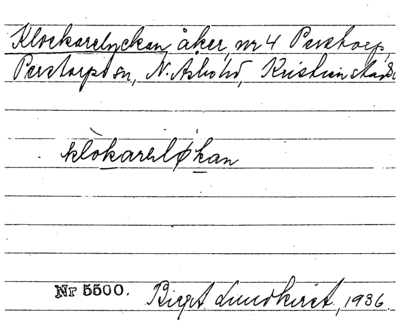 Klockarelyckan åker, nr 4 Perstorp,
Perstorps sn, N. Åsbo hd, Kristianstads
klòkarelǿkan
Nr 5500. Birgit Lundkvist, 1936.